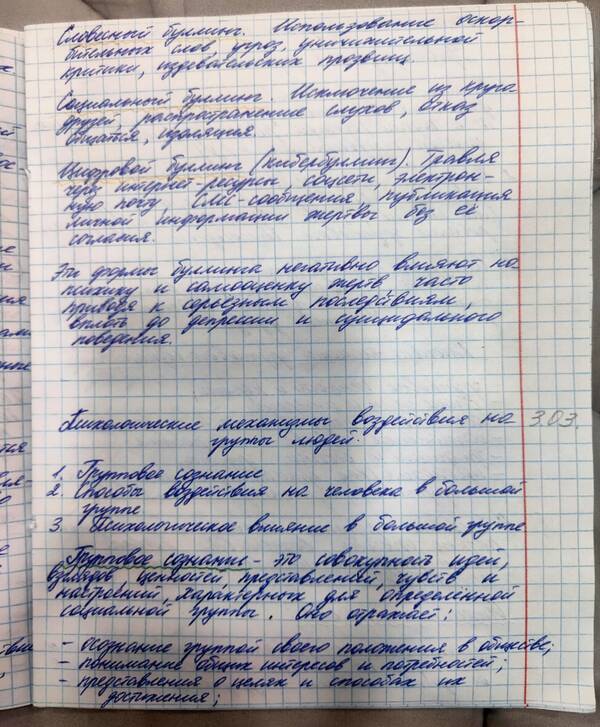 Словесный буллинг. Использование оскор-
бительных слов, угроз, уничижительной
критики, издевательских прозвищ.
Социальный буллинг. Исключение из круга
друзей распространение слухов, отказ
общаться, изоляция.
Цифровой буллинг (кибербуллинг). Травля
через интернет-ресурсы, соцсети, электрон-
ную почту СМС-сообщения, публикация
личной информации жертвы без её
согласия.
Эти формы буллинга негативно влияют на
психику и самооценку жертв часто
приводя к серьёзным последствиям,
вплоть до депрессии и суицидального
поведения.
Психологические механизмы воздействия на 3.03.
группы людей.
1. Групповое сознание
2. Способы воздействия на человека в большой
группе
3. Психологическое влияние в большой группе
Групповое сознание - это совокупность идей,
взглядов ценностей, представлений, чувств и
настроений, характерных для определённой
социальной группы. Оно отражает:
- осознание группой своего положения в обществе;
- понимание общих интересов и потребностей;
- представления о целях и способах их
достижения;